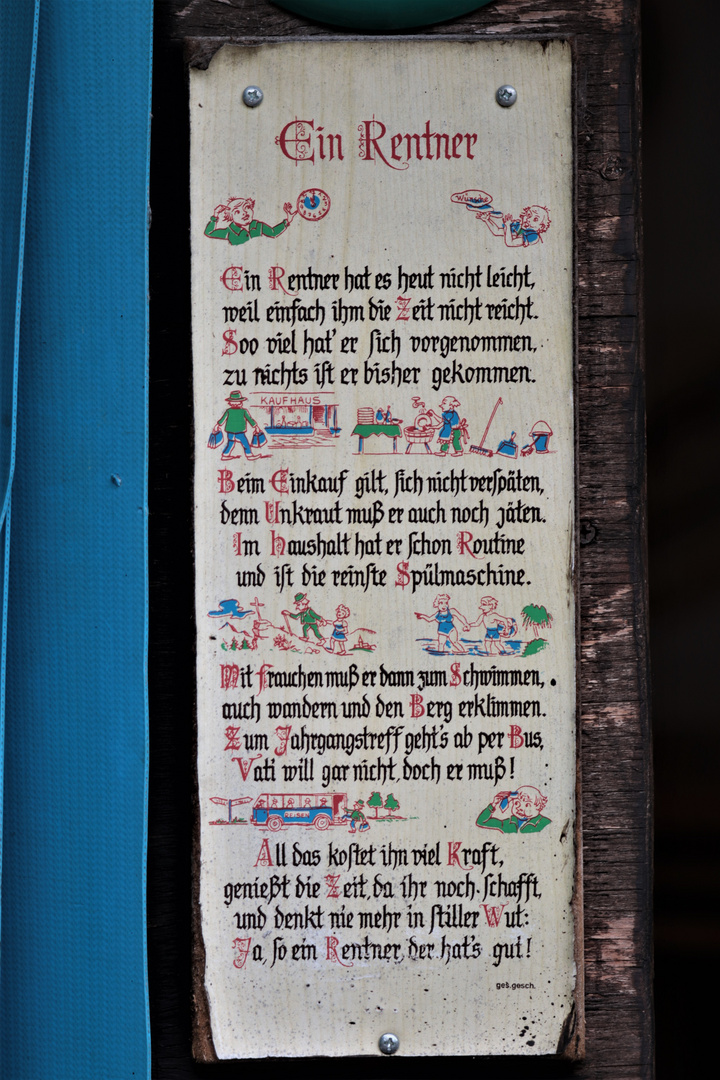 Ein Rentner
Wünsche
Ein Rentner hat es heut nicht leicht,
weil einfach ihm die Zeit nicht reicht.
Soo viel hat' er sich vorgenommen,
zu nichts ist er bisher gekommen.
KAUFHAUS
Beim Einkauf gilt, sich nicht verspäten,
denn Unkraut muß er auch noch jäten.
Im Haushalt hat er schon Routine
und ist die reinste Spülmaschine.
Mit Frauchen muß er dann zum Schwimmen,
auch wandern und den Berg erklimmen.
Zum Jahrgangstreff geht's ab per Bus,
Vati will gar nicht, doch er muß!
All das kostet ihn viel Kraft,
genießt die Zeit, da ihr noch schafft,
und denkt nie mehr in stiller Wut:
Ja, so ein Rentner, der hat's gut!
ges.gesch.